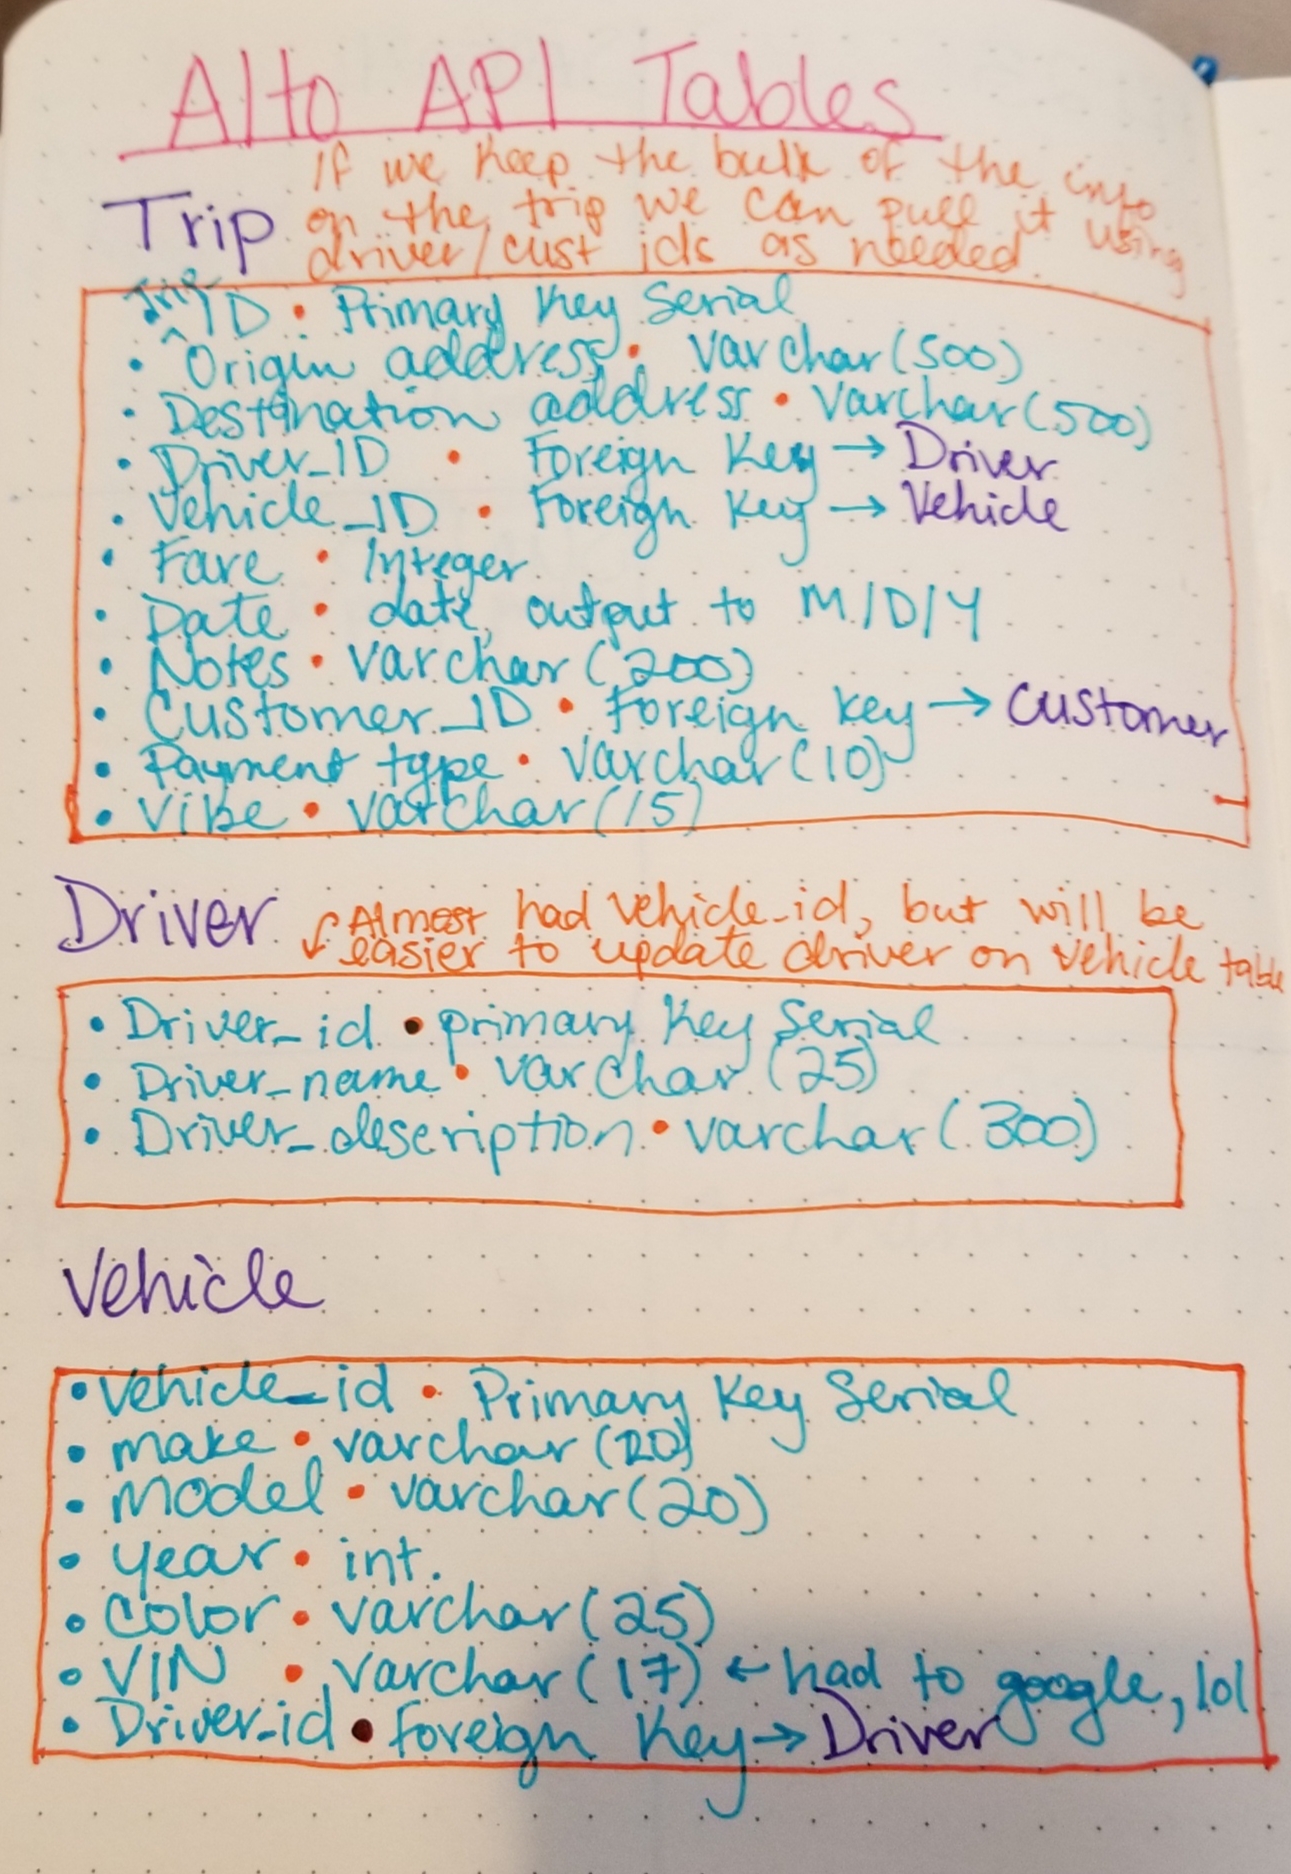 Alto API Tables
Trip
If we keep the bulk of the info
on the trip we can pull it using
driver/cust ids as needed.
• Trip ID • Primary Key Serial
• Origin address • Varchar(500)
• Destination address • Varchar(500)
• Driver_ID • Foreign Key → Driver
• Vehicle_ID • Foreign Key → Vehicle
• Fare • Integer
• Date • date, output to M/D/Y
• Notes • Varchar(200)
• Customer_ID • Foreign key → Customer
• Payment type • Varchar(10)
• Vibe • varchar(15)
Driver
Almost had vehicle_id, but will be
easier to update driver on vehicle table
• Driver_id • primary Key Serial
• Driver_name • varchar (25)
• Driver_description • varchar(300)
Vehicle
• Vehicle_id • Primary Key Serial
• make • varchar(20)
• model • varchar(20)
• year • int.
• color • varchar(25)
• VIN • varchar(17) ← had to google, lol
• Driver_id • Foreign Key → Driver